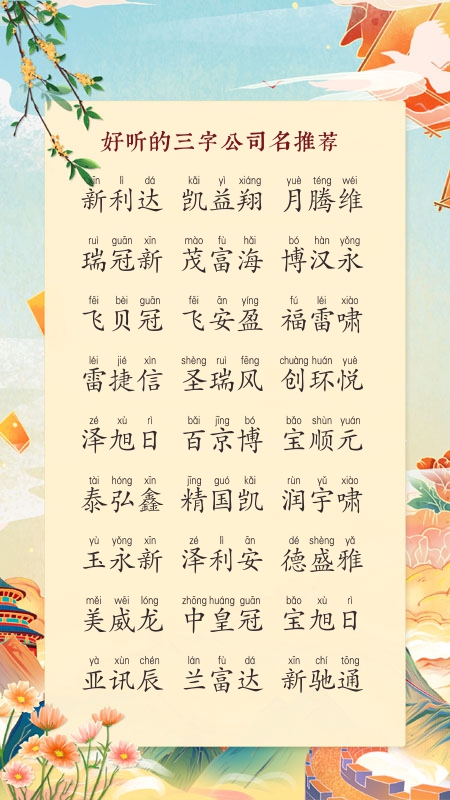 好听的三字公司名推荐
xīn lì dá kǎi yì xiáng yuè téng wéi
新利达 凯益翔 月腾维
ruì guān xīn mào fù hǎi bó hàn yǒng
瑞冠新 茂富海 博汉永
fēi bèi guān fēi ān yíng fú léi xiào
飞贝冠 飞安盈 福雷啸
léi jié xìn shèng ruì fēng chuàng huán yuè
雷捷信 圣瑞风 创环悦
zé xù rì bǎi jīng bó bǎo shùn yuán
泽旭日 百京博 宝顺元
tài hóng xīn jīng guó kǎi rùn yǔ xiào
泰弘鑫 精国凯 润宇啸
yù yǒng xīn zé lì ān dé shèng yǎ
玉永新 泽利安 德盛雅
měi wēi lóng zhōng huáng guān bǎo xù rì
美威龙 中皇冠 宝旭日
yà xùn chén lán fù dá xīn chí tōng
亚讯辰 兰富达 新驰通